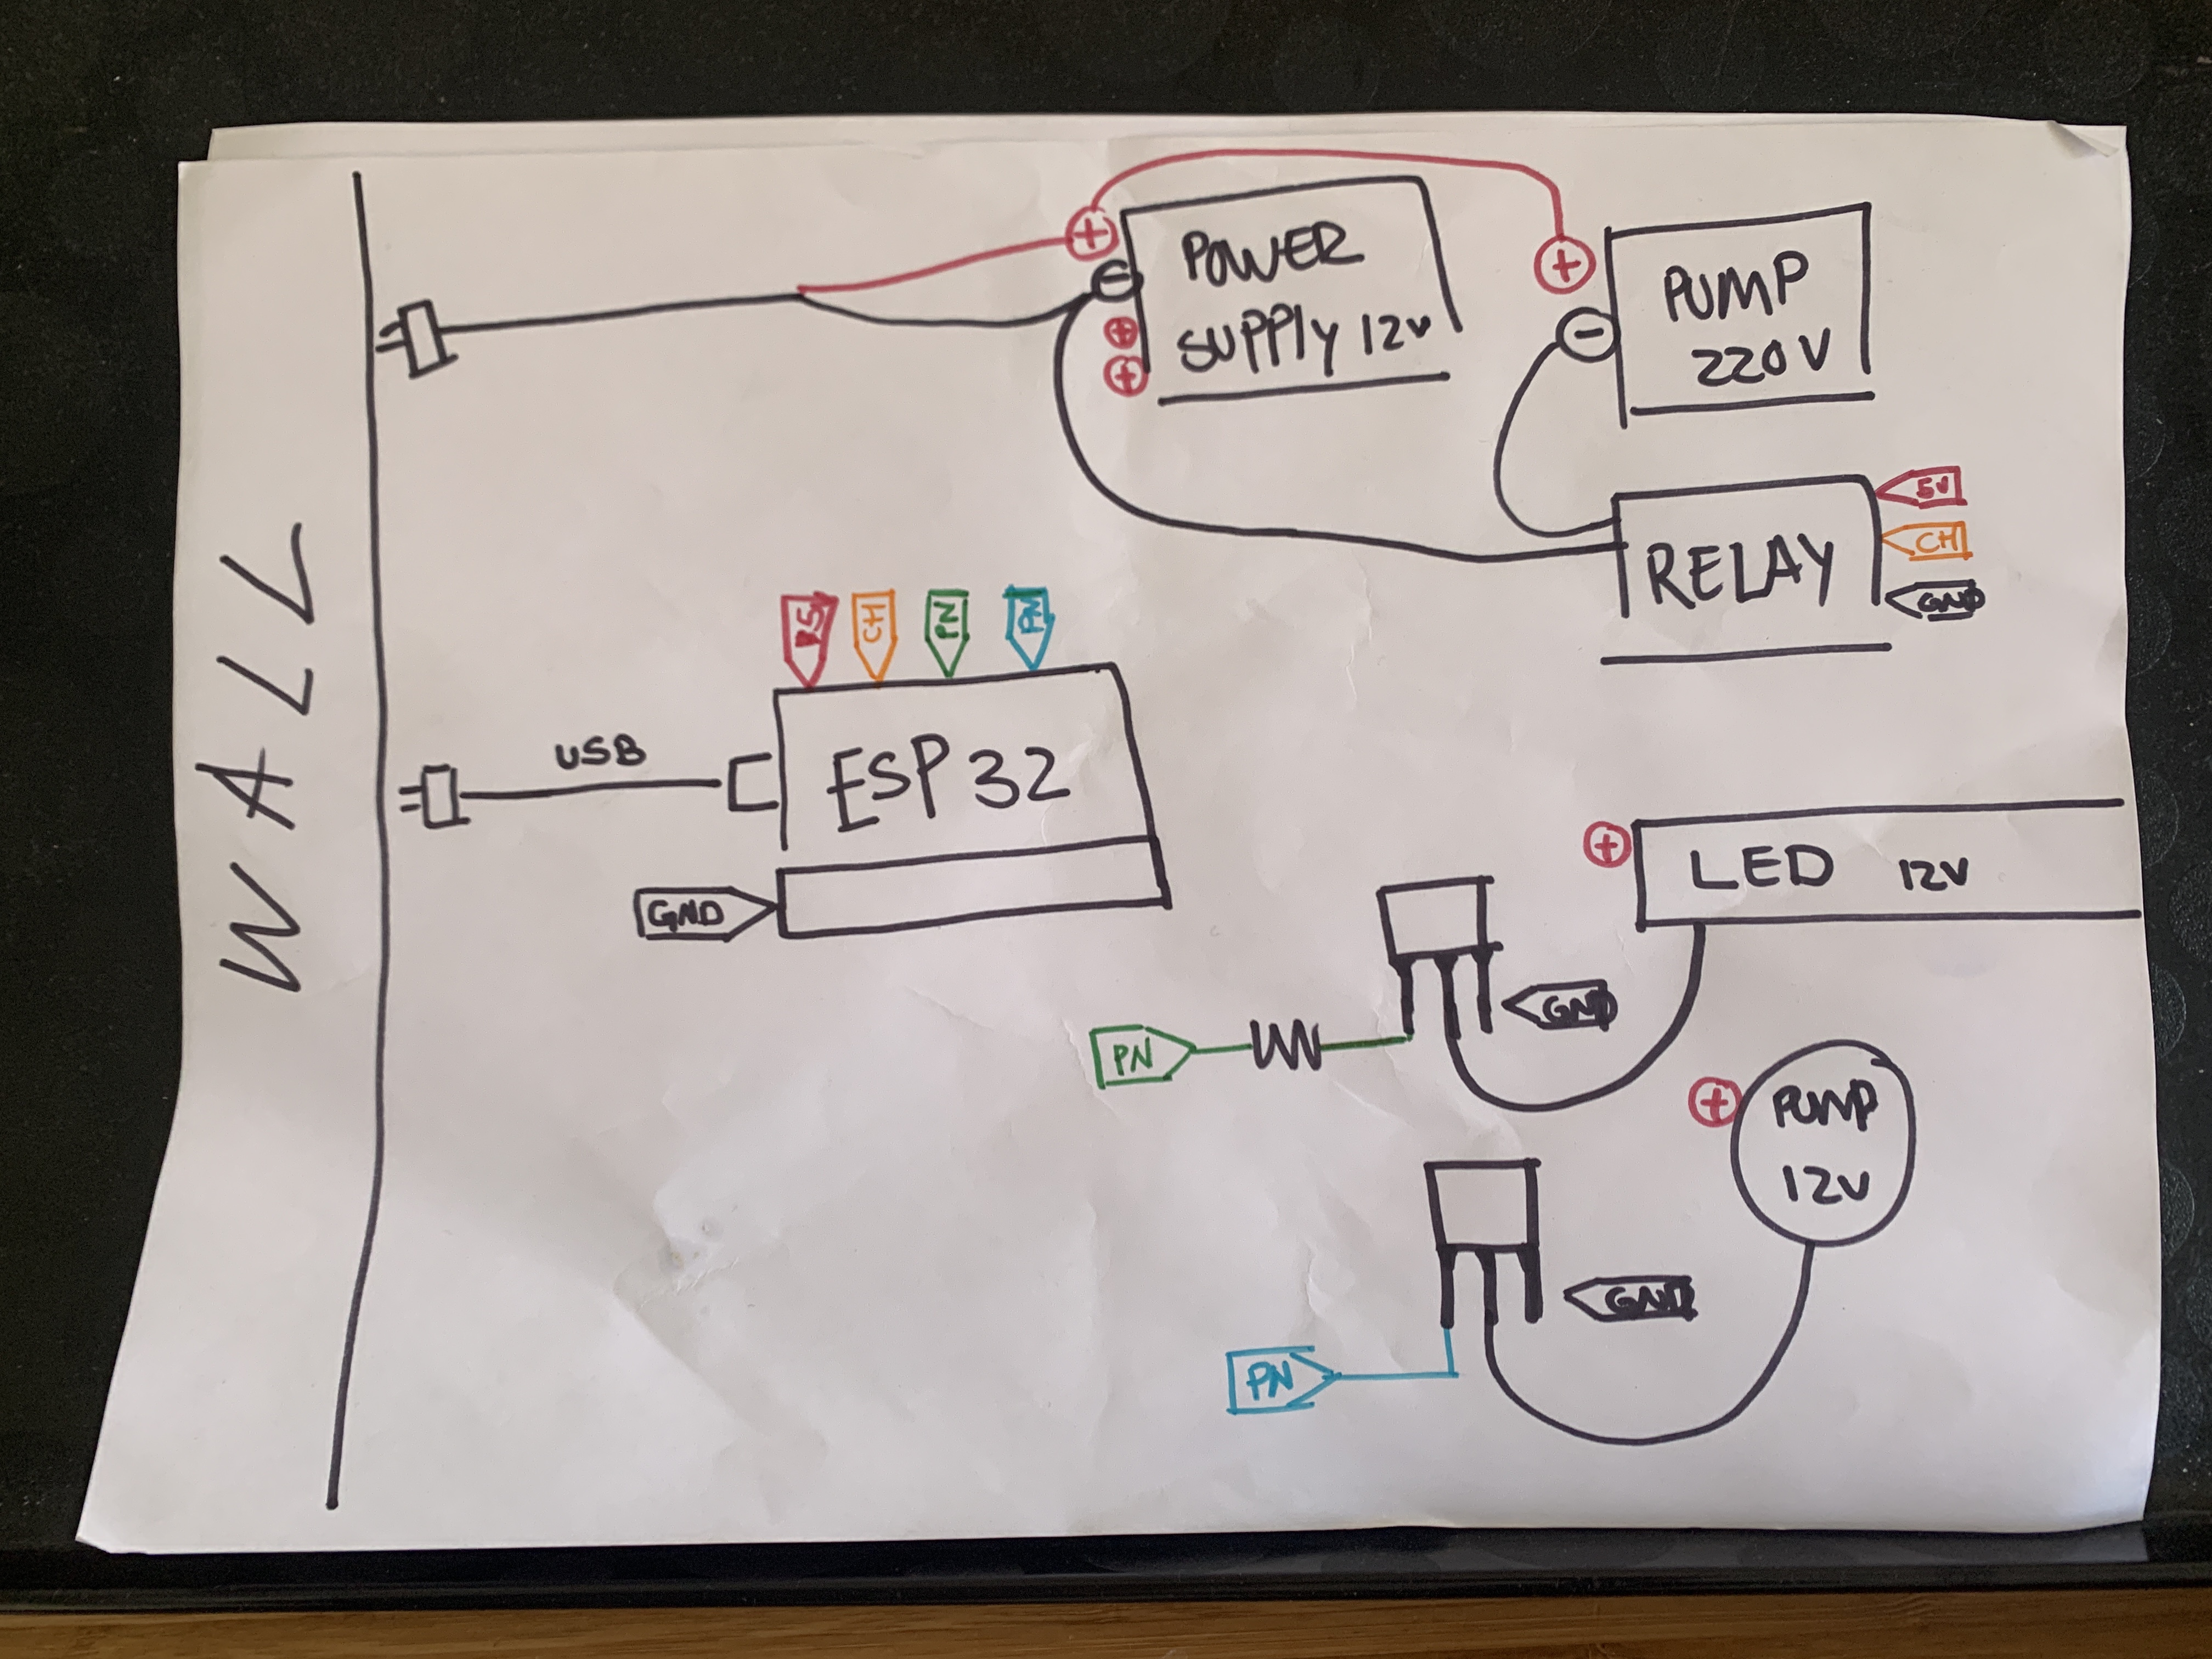 WALL
POWER
SUPPLY 12V
PUMP
220V
RELAY
5V
CH
GND
5V
CH
PN
PN
USB
ESP 32
GND
LED 12V
GND
PN
PUMP
12V
GND
PN